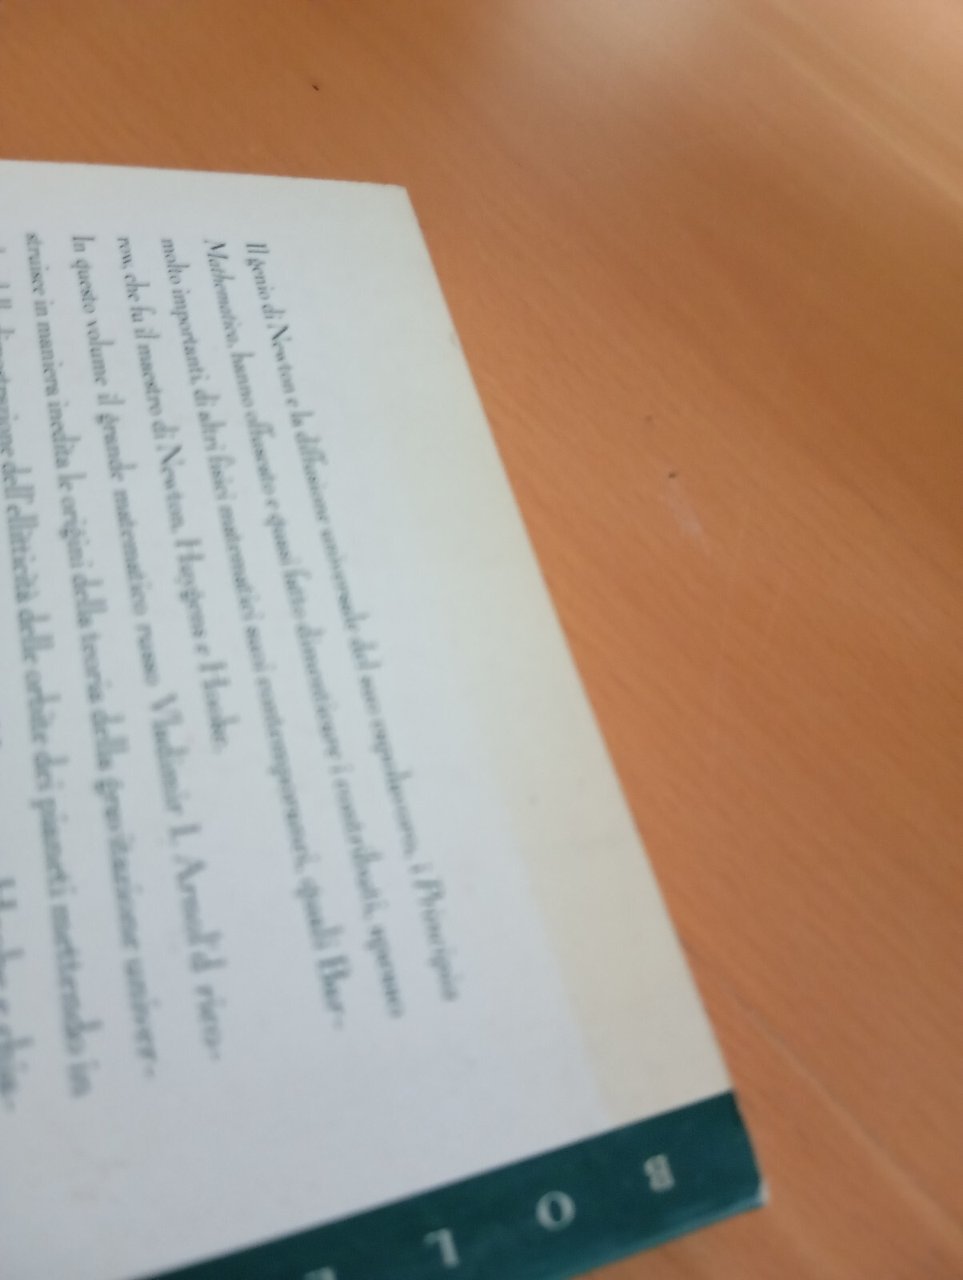 Il genio di Newton e la diffusione universale del suo capolavoro, i Principia
Mathematica, hanno offuscato e quasi fatto dimenticare i contributi, spesso
molto importanti, di altri fisici matematici suoi contemporanei, quali Bar-
row, che fu il maestro di Newton, Huygens e Hooke.
In questo volume il grande matematico russo Vladimir I. Arnol'd rico-
struisce in maniera inedita le origini della teoria della gravitazione univer-
dell'ellitticità delle orbite dei pianeti mettendo in
Hooke e
BOL